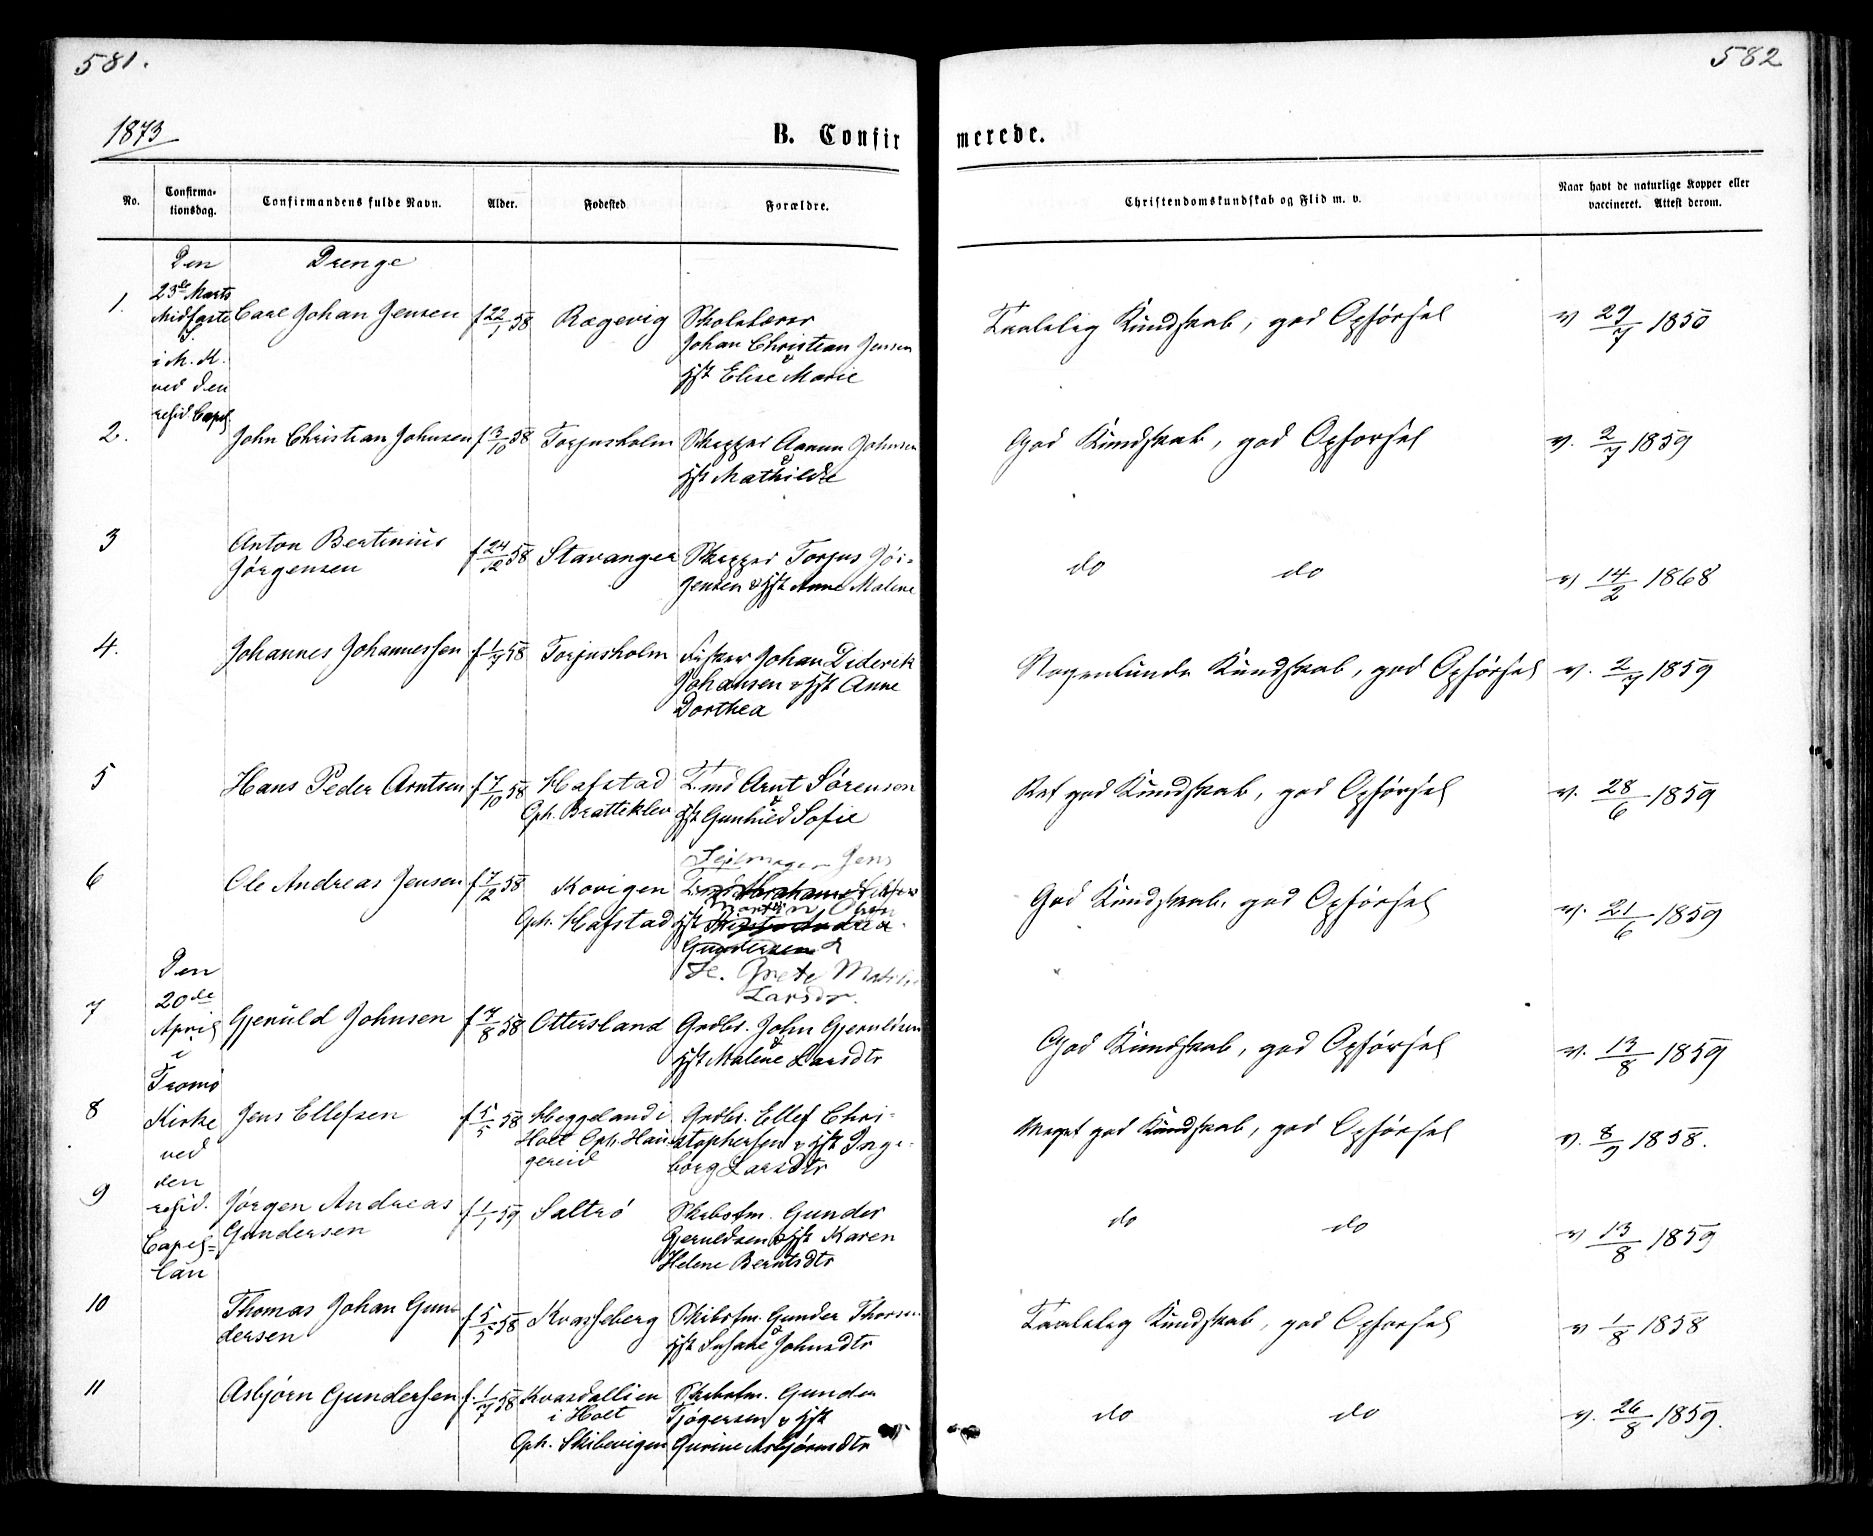 581.
582
1873
B. Confirmerede.
No. Confirmationsdag. Confirmandens fulde Navn. Alder. Fødested Forældre. Christendomskundskab og Flid m. v. Naar havt de naturlige Kopper eller vaccineret. Attest derom.
Den 23de Marts Midfaste i M. K. ved den resid. Capel
Drenge
1. Carl Johan Jensen f 22/1 58 Rægevig Skolelærer
Johan Christian Jensen
& Hst Elise Marie
Taalelig Kundskab, god Opførsel v 29/7 1850
2. John Christian Johnsen f 3/10 58 Torjusholm Skipper Aanun Johnsen
& Hst Mathilde
God Kundskab, god Opførsel v. 2/7 1859
3 Anton Bertinius
Jørgensen f 24/12 58 Stavanger Skipper Torjus Jør-
gensen & Hst Anne Malene
do do v 14/2 1868
4. Johannes Johannessen f 1/7 58 Torjusholm Fisker Johan Diderik
Johansen & Hst Anne
Dorthea
Nogenlunde Kundskab, god Opførsel v. 2/7 1859
5 Hans Peder Arntsen f 7/10 58 Hafstad
Oph. Brattiklev
Tmd Arnt Sørensen
& Hst Gunhild Sofie
Ret god Kundskab, god Opførsel v. 28/6 1859
6 Ole Andreas Jensen f 7/12 58 Kovigen
Oph. Hafstad
Sejlmager Jens
Morten Olsen
Hst Andrea
Gundersen &
H. Grete Mathilde
Larsdr.
God Kundskab, god Opførsel v. 21/6 1859
Den 20de April i Tromø Kirke ved den resid. Capel-
lan
7 Gjeruld Johnsen f 7/8 58 Ottersland Grdbr. John Gjeruldsen
& Hst Malene Larsdtr
God Kundskab, god Opførsel v. 13/8 1859
8 Jens Ellefsen f 5/5 58 Heggeland i
Holt Oph. Hau
gereid
Grdbr. Ellef Chri-
stophersen & Hst Inge-
borg Larsdtr
Meget god Kundskab, god Opførsel v. 8/9 1858.
9 Jørgen Andreas
Gundersen f 1/1 59 Saltrø Skibstm. Gunder
Gjeruldsen & Hst Karen
Helene Berntsdtr
do do v 13/8 1859
10 Thomas Johan Gun-
dersen f 5/5 58 Kvasseberg Skibstm. Gunder Thorsen
& Hst Susane Johnsdtr
Taalelig Kundskab, god Opførsel v 1/8 1858
11 Asbjørn Gundersen f. 1/7 58 Kvasdallien
i Holt
Oph. Skibevigen
Skibstm. Gunder
Tjøgersen & Hst
Gurine Asbjørnsdtr
do do v. 26/8 1859.